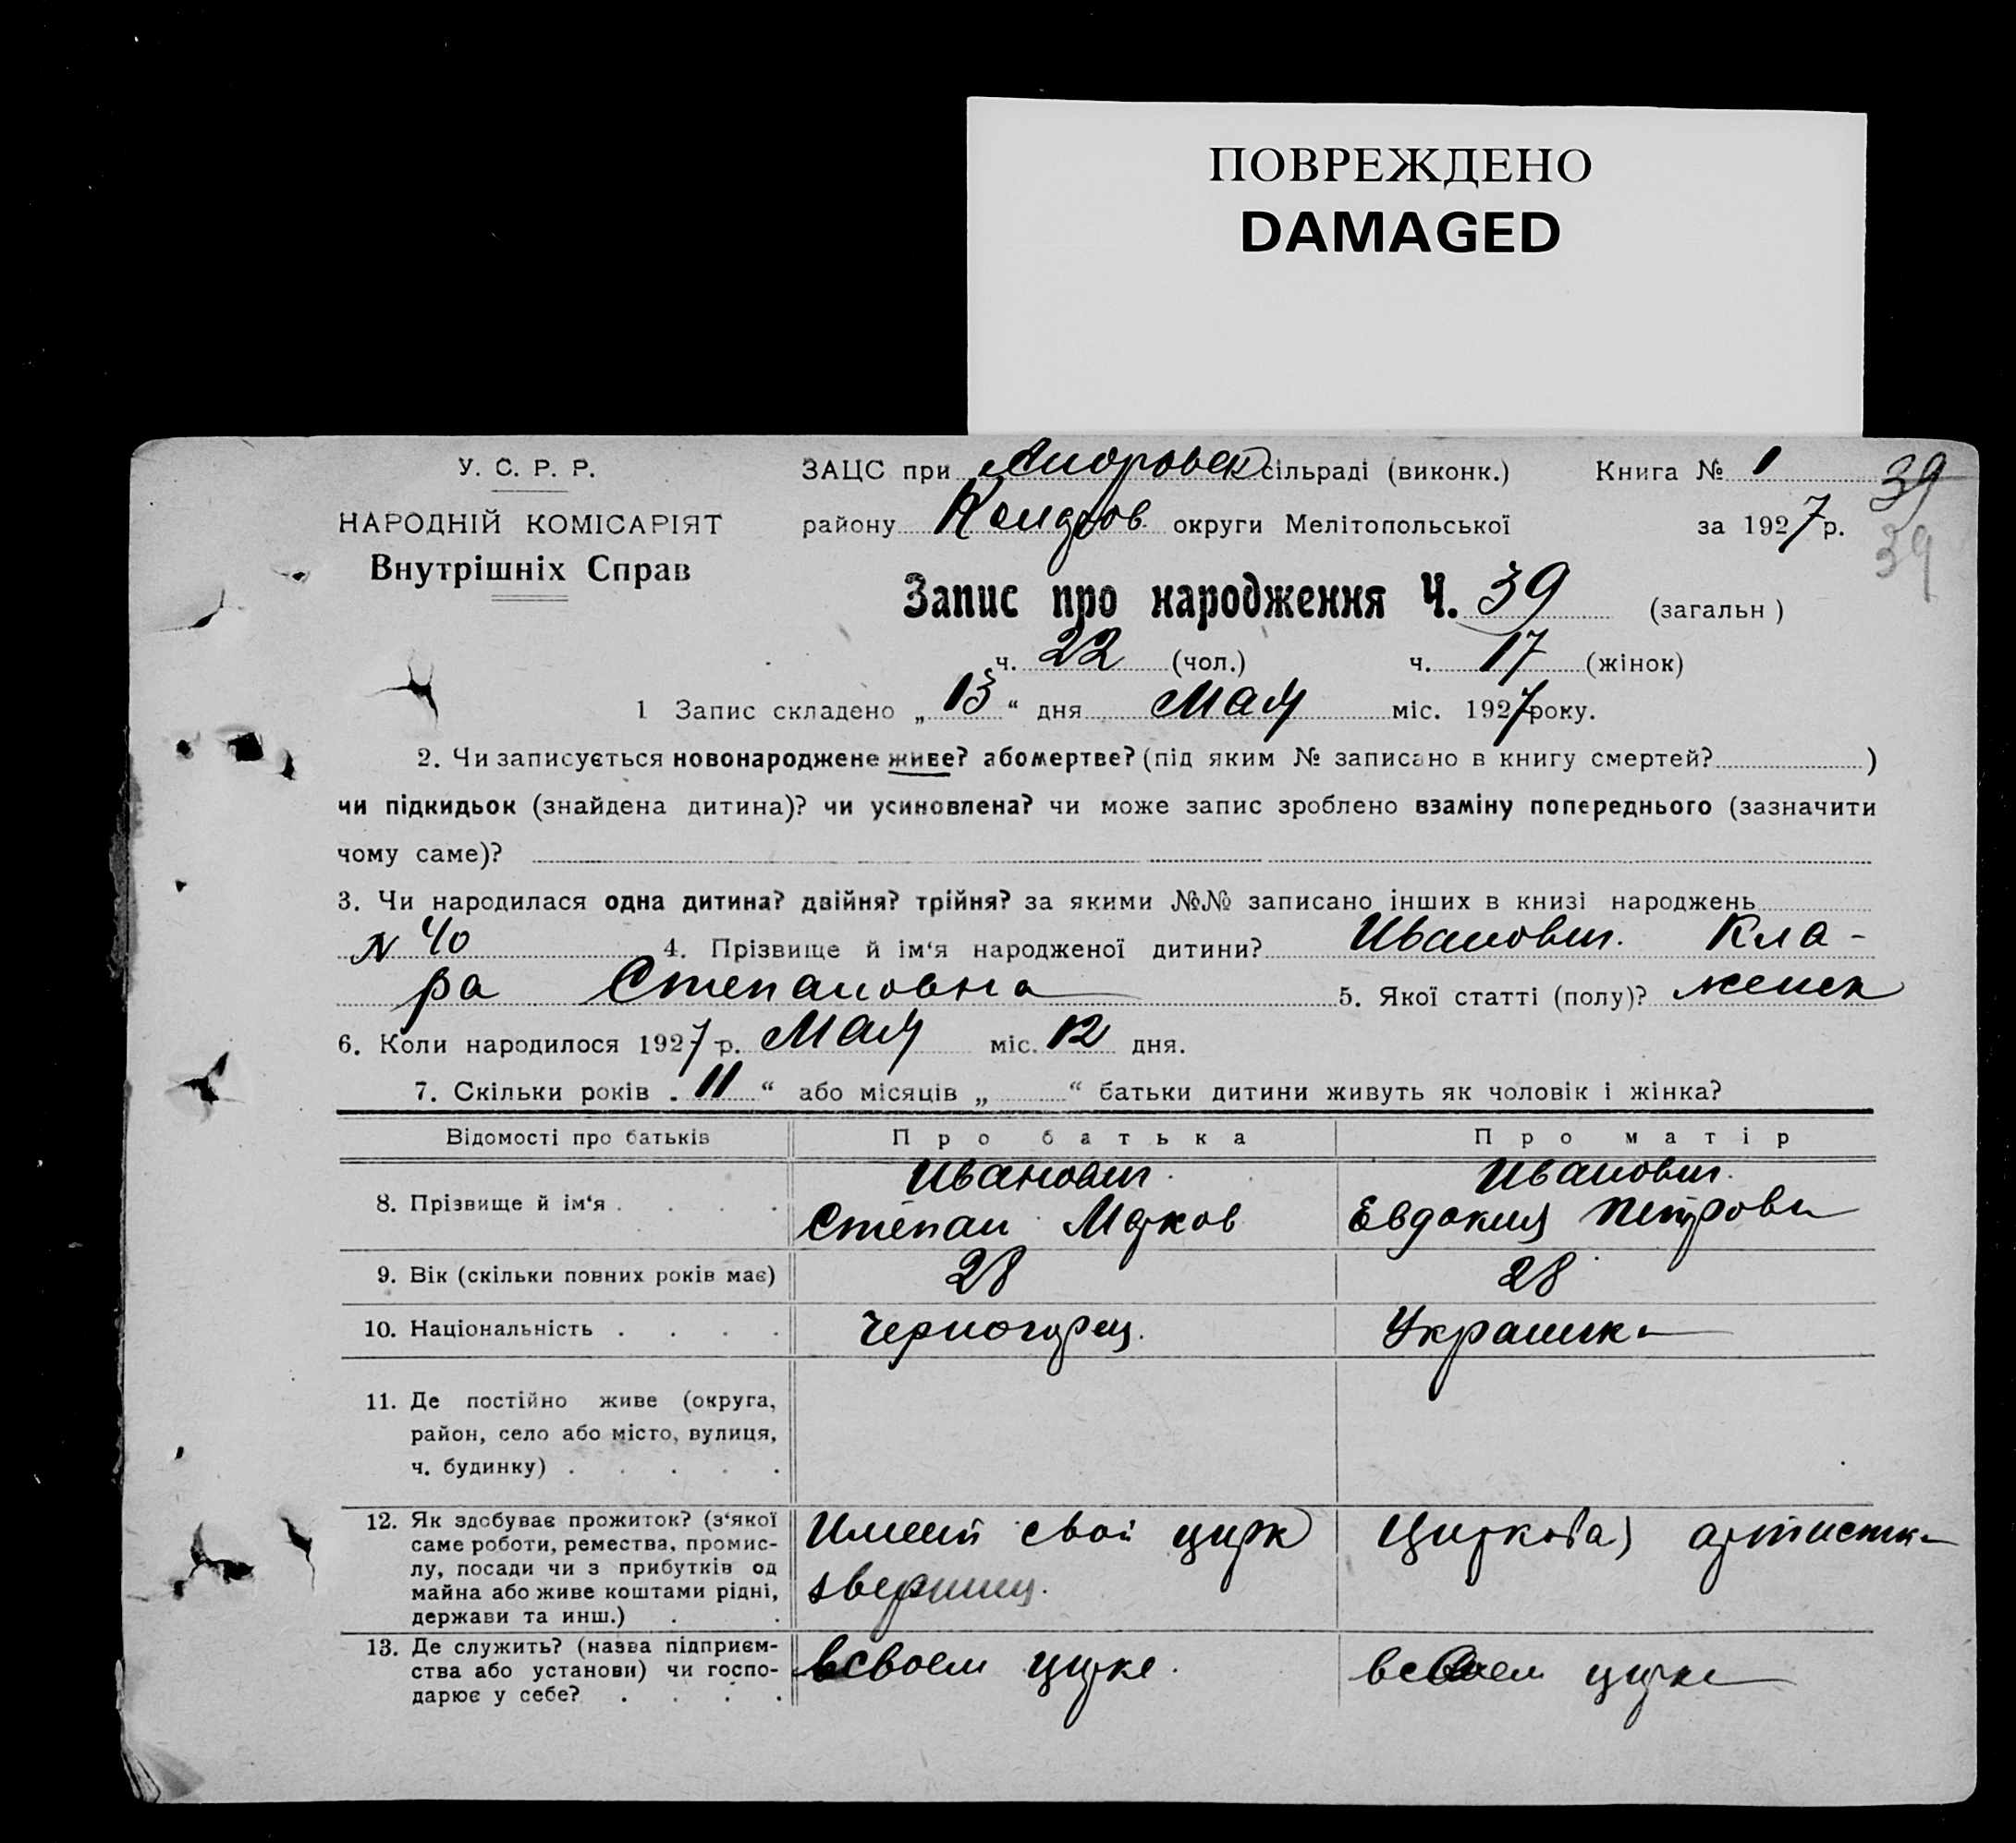 ПОВРЕЖДЕНО
DAMAGED
У. С. Р. Р.
НАРОДНІЙ КОМІСАРІЯТ
Внутрішніх Справ
ЗАЦС при сільраді (виконк.) Книга № 1 39
району округи Мелітопольської за 1927 р.
39
Запис про народження Ч. 39 (загальн)
ч. 22 (чол.) ч. 17 (жінок)
1 Запис складено „ 13 “ дня Мая міс. 1927 року.
2. Чи записується новонароджене живе? або мертве? (під яким № записано в книгу смертей? )
чи підкидьок (знайдена дитина)? чи усиновлена? чи може запис зроблено взаміну попереднього (зазначити
чому саме)?
3. Чи народилася одна дитина? двійня? трійня? за якими №№ записано інших в книзі народжень
N 40 4. Прізвище й ім‘я народженої дитини? Иванович. Кла-
ра Степановна 5. Якої статті (полу)? женск
6. Коли народилося 1927 р. Мая міс. 12 дня.
7. Скільки років „ 11 “ або місяців „ “ батьки дитини живуть як чоловік і жінка?
Відомості про батьків Про батька Про матір
8. Прізвище й ім‘я . . . . Иванович. Степан Марков Иванович. Евдокия Петровн
9. Вік (скільки повних років має) 28 28
10. Національність . . . . Черногорец. Украинка
11. Де постійно живе (округа,
район, село або місто, вулиця,
ч. будинку) . . . . .
12. Як здобуває прожиток? (з‘якої
саме роботи, ремества, промис-
лу, посади чи з прибутків од
майна або живе коштами рідні,
держави та инш.) . .
Имеет свой цирк
зверинец.
Цирковая артистка
13. Де служить? (назва підприєм-
ства або установи) чи госпо-
дарює у себе? . . . .
в своем цирке.
в своем цирке